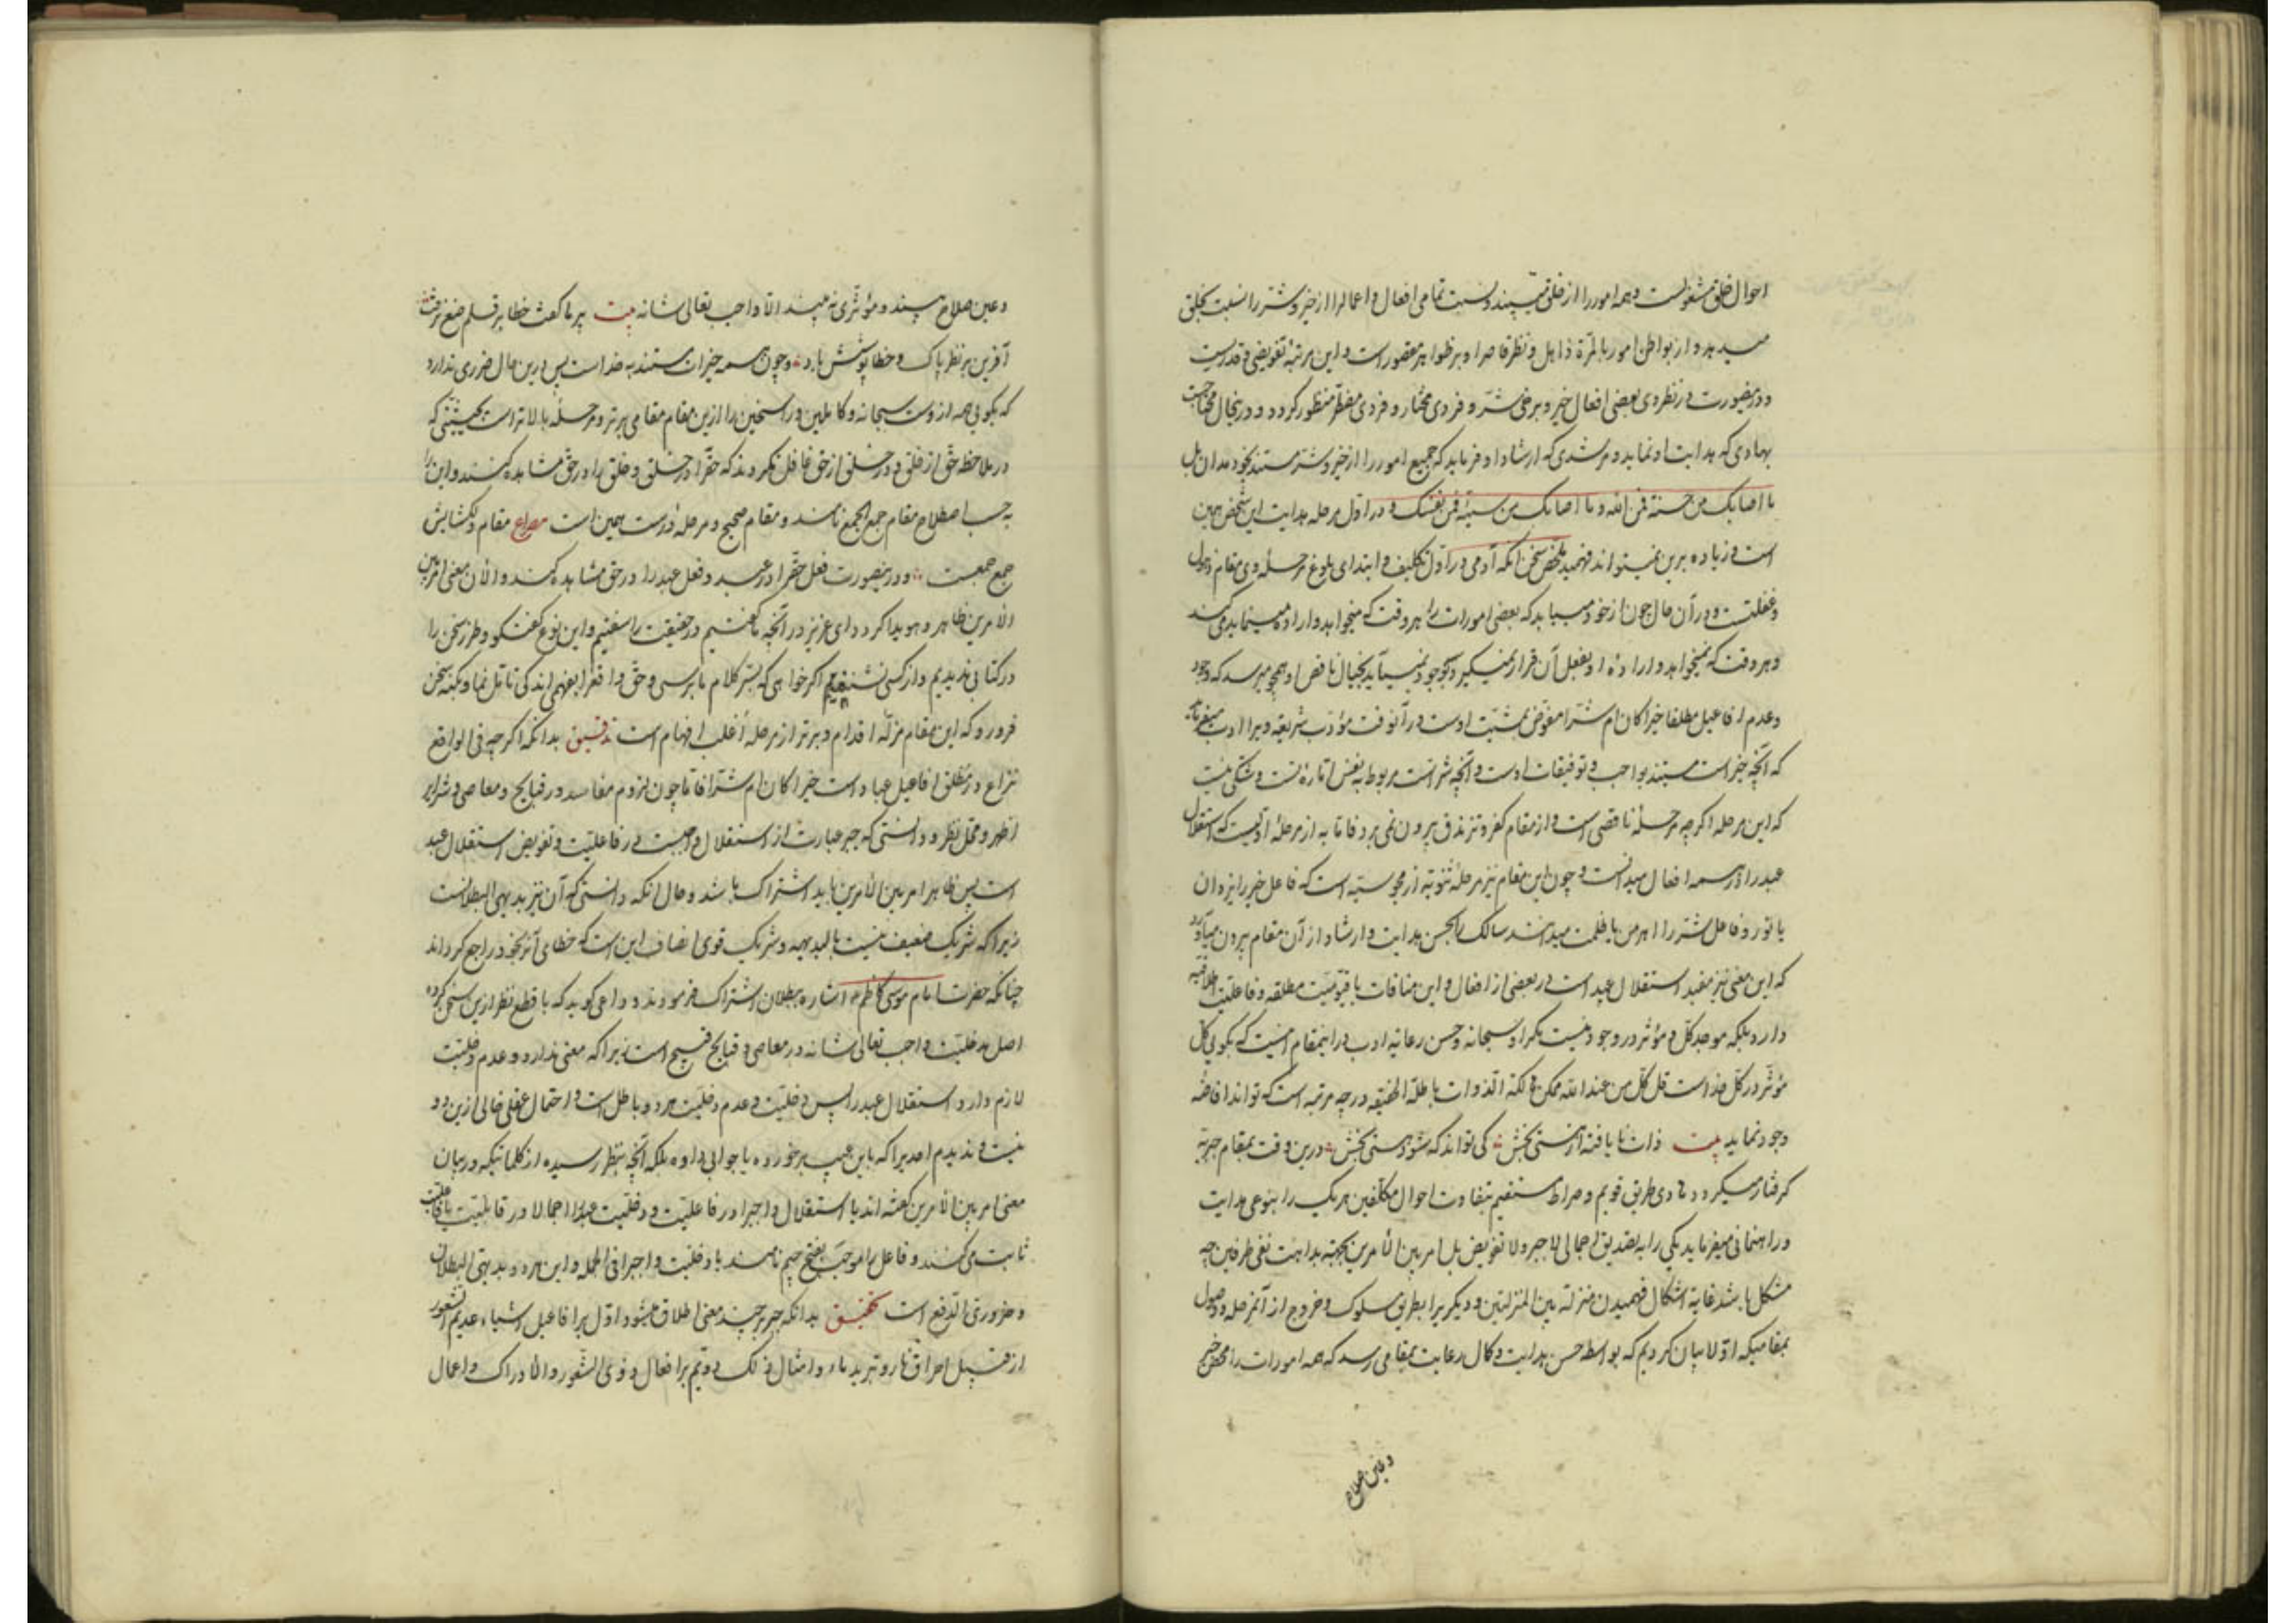 احوال خلق مشغولست و همه امور را از خلق می‌بیند و نسبت تمامی افعال و اعمال را از خیر و شر را نسبت بخلق
میدهد و از بواطن امور بالمرة ذاهل و نظر قاصر او بر ظواهر مقصور است و این مرتبهٔ تفویضی و قدریست
و در مقصورت در نظر وی بعضی افعال خیر و برخی شر و فردی مختار و فردی مضطر منظور کردد و در ینحال محتاجست
بهادی که هدایت او نماید و مرشدی که ارشاد او فرماید که جمیع امور را از خیر و شر مستند بخود مدان بل
ما اصابک من حسنة فمن الله و ما اصابک من سیئة فمن نفسک و در اول مرحله هدایت این شخص همین
است و زیاده برین نمیتواند فهمید ملخص سخن انکه آدمی در اول تکلیف و ابتدای بلوغ مرحلهٔ وی مقام ذهول
و غفلتست و در آن حال چون از خود مییابد که بعضی امورات را هر وقت که میخواهد و اراده مینماید می‌کند
و هر وقت که نمیخواهد و اراده او بفعل آن قرار نمیگیرد بوجود نمیآید بخیال ناقص او همچو میرسد که وجود
و عدم افاعیل مطلقا خیرا کان ام شرا مفوض بمشیت اوست در آنوقت مؤدب شریعه ویرا ادب میفرماید
که آنچه خیر است مستند بواجب و توفیقات اوست و آنچه شر است مربوط به نفس اماره است و شکی نیست
که این مرحله اگرچه مرحلهٔ ناقصی است و از مقام کفر و تزندق بیرون نمی‌برد فاما به از مرحلهٔ اولیست که استقلال
عبد را در همه افعال میدانست و چون این مقام نیز مرحلهٔ ثنویه از مجوسیه است که فاعل خیر را یزدان
یا نور و فاعل شر را اهرمن یا ظلمت میدانند سالک را بحسن هدایت و ارشاد از آن مقام بیرون میآورد
که این معنی نیز مفید استقلال عبد است در بعضی از افعال و این منافات با قیومیت مطلقه و فاعلیت اطلاقیه
دارد بلکه موجد کل و مؤثر در وجود نیست مگر او سبحانه و حسن رعایه ادب در اینمقام اینست که بگوئی کل
مؤثر در کل خدا است قل کل من عند الله ممکن هالکة الذوات باطلة الحقیقه در چه مرتبه است که تواند افاضهٔ
وجود نماید بیت ذات نایافته از هستی بخش کی تواند که شود هستی بخش درین وقت بمقام جبریه
گرفتار میگردد هادی طریق قویم و صراط مستقیم بتفاوت احوال مکلفین هر یک را بنوعی هدایت
و راهنمائی میفرماید یکی را به تصدیق اجمالی لا جبر و لا تفویض بل امر بین الأمرین بجهته بداهت نفی طرفین چه
مشکل باشد غایة اشکال فهمیدن منزلة بین المنزلتین و دیگر یرا بطریق سلوک و خروج از آنمرحله و وصول
بمقامیکه اولا بیان کردیم که بواسطه حسن هدایت و کمال رعایت بمقامی رسد که همه امورات را محض خیر
و عین صلاح
و عین صلاح بیند و مؤثری نه بیند الا واجب تعالی شانه بیت پیر ما گفت خطا بر قلم صنع نرفت
آفرین بر نظر پاک و خطاپوشش باد و چون همه خیرات مستند به خدا است پس درین حال ضرری ندارد
که بگویی همه از وست سبحانه و کاملین و راسخین را ازین مقام مقامی برتر و مرحلهٔ بالاتر است بحیثیتی که
در ملاحظه حق از خلق و در خلق از حق غافل نگردند که حق را در خلق و خلق را در حق مشاهده کنند و این را
بحسب اصطلاح مقام جمع الجمع نامند و مقام صحیح و مرحله درست همین است مصراع مقام دلکشایش
جمع جمعست و در ینصورت فعل حق را در عبد و فعل عبد را در حق مشاهده کند و الآن معنی امر بین
الأمرین ظاهر و هویدا کردد ای عزیز در آنچه گفتیم در حقیقت را سفتیم و این نوع گفتگو و طرز سخن را
در کتابی ندیدیم و از کسی نشنیدیم اگر خواهی که بسر کلام ما برسی و حق واقع را بفهمی اندکی تامل نما و بکنه سخن
فرو رو که این مقام مزلة اقدام و برتر از مرحلهٔ اغلب افهام است تدقیق بدانکه اگرچه فی الواقع
نزاع در مطلق افاعیل عباد است خیرا کان ام شرا فاما چون لزوم مفاسد در قبایح و معاصی و شرایر
اظهر و محل نظر و دانستی که جبر عبارت از استقلال واجبست در فاعلیت و تفویض استقلال عبد
است پس ظاهرا امر بین الأمرین باید اشتراک باشد و حال آنکه دانستی که آن نیز بدیهی البطلانست
زیرا که شریک ضعیف نیست بالبدیهه و شریک قوی انصاف این است که خطای آنرا بخود راجع کرداند
چنانکه حضرت امام موسی کاظم ع اشاره ببطلان اشتراک فرمودند و داعی گوید که با قطع نظر ازین سخن کرده
اصل مدخلیت واجب تعالی شانه در معاصی و قبایح قبیح است زیرا که معنی ندارد و عدم دخلیت
لازم دارد استقلال عبد را پس دخلیت و عدم دخلیت هر دو باطل است و احتمال عقلی خالی ازین دو
نیست و ندیدیم احدیرا که باین عیب برخورده یا جوابی داده بلکه آنچه بنظر رسیده از کلماتیکه در بیان
معنی امر بین الأمرین گفته‌اند یا استقلال واجب را در فاعلیت و دخلیت عبد را اجمالا در قابلیت یا فاعلیت
ثابت می‌کنند و فاعل را موجب بفتح جیم نامند یا دخلیت واجب را فی الجمله و این هر دو بدیهی البطلان
و ضروری الدفع است تحقیق بدانکه جبر بر چند معنی اطلاق میشود اول بر افاعیل اشیاء عدیم الشعور
از قبیل احراق نار و تبرید ماء و امثال ذلک دویم بر افعال ذوی الشعور و الادراک و اعمال